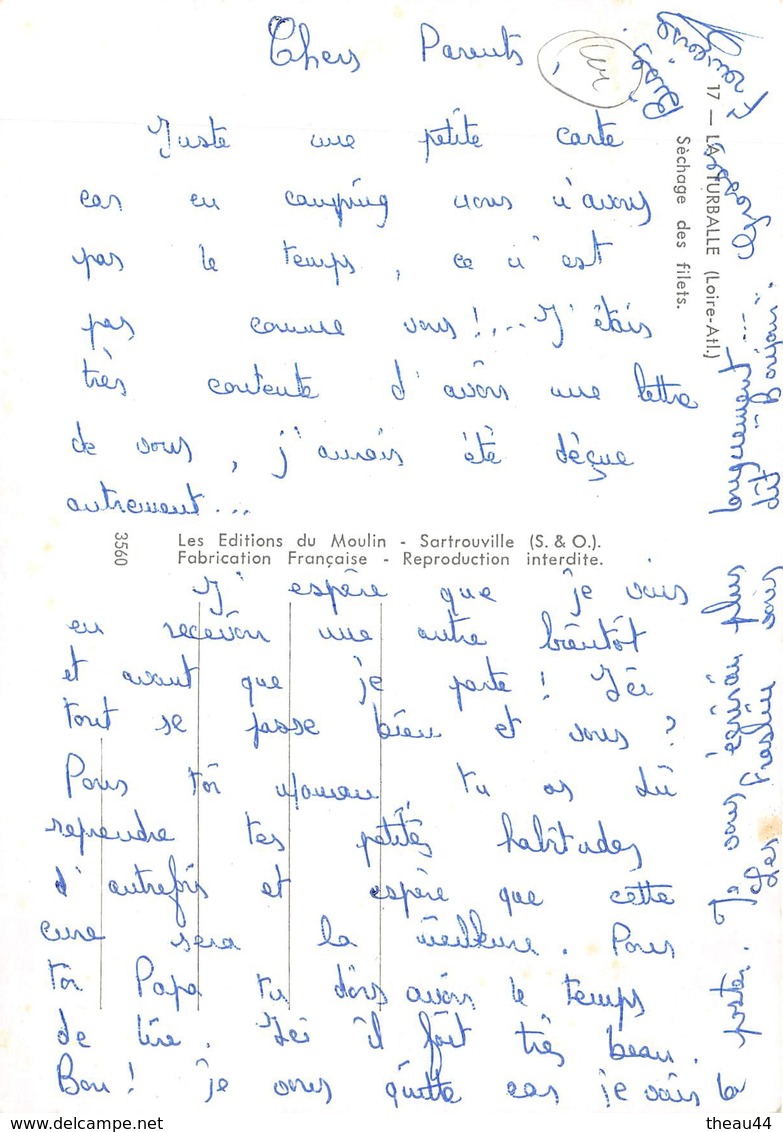 Chers Parents,
Juste une petite carte
car en camping nous n'avons
pas le temps, ce n'est
pas comme vous !... J'étais
très contente d'avoir une lettre
de vous, j'aurais été déçue
autrement...
J'espère que je vais
en recevoir une autre bientôt
et avant que je parte ! Ici
tout se passe bien et vous ?
Pour toi maman tu as dû
reprendre tes petites habitudes
d'autrefois et espère que cette
cure sera la meilleure. Pour
toi Papa tu dois avoir le temps
de lire. Ici il fait très beau.
Bon ! je vous quitte car je vais la
poster. Je vous écrirai plus
longuement....
Les
dit
Grosses
Bises
17 — LA TURBALLE (Loire-Atl.)
Sèchage des filets.
Les Editions du Moulin - Sartrouville (S. & O.).
Fabrication Française - Reproduction interdite.
3560
theau44